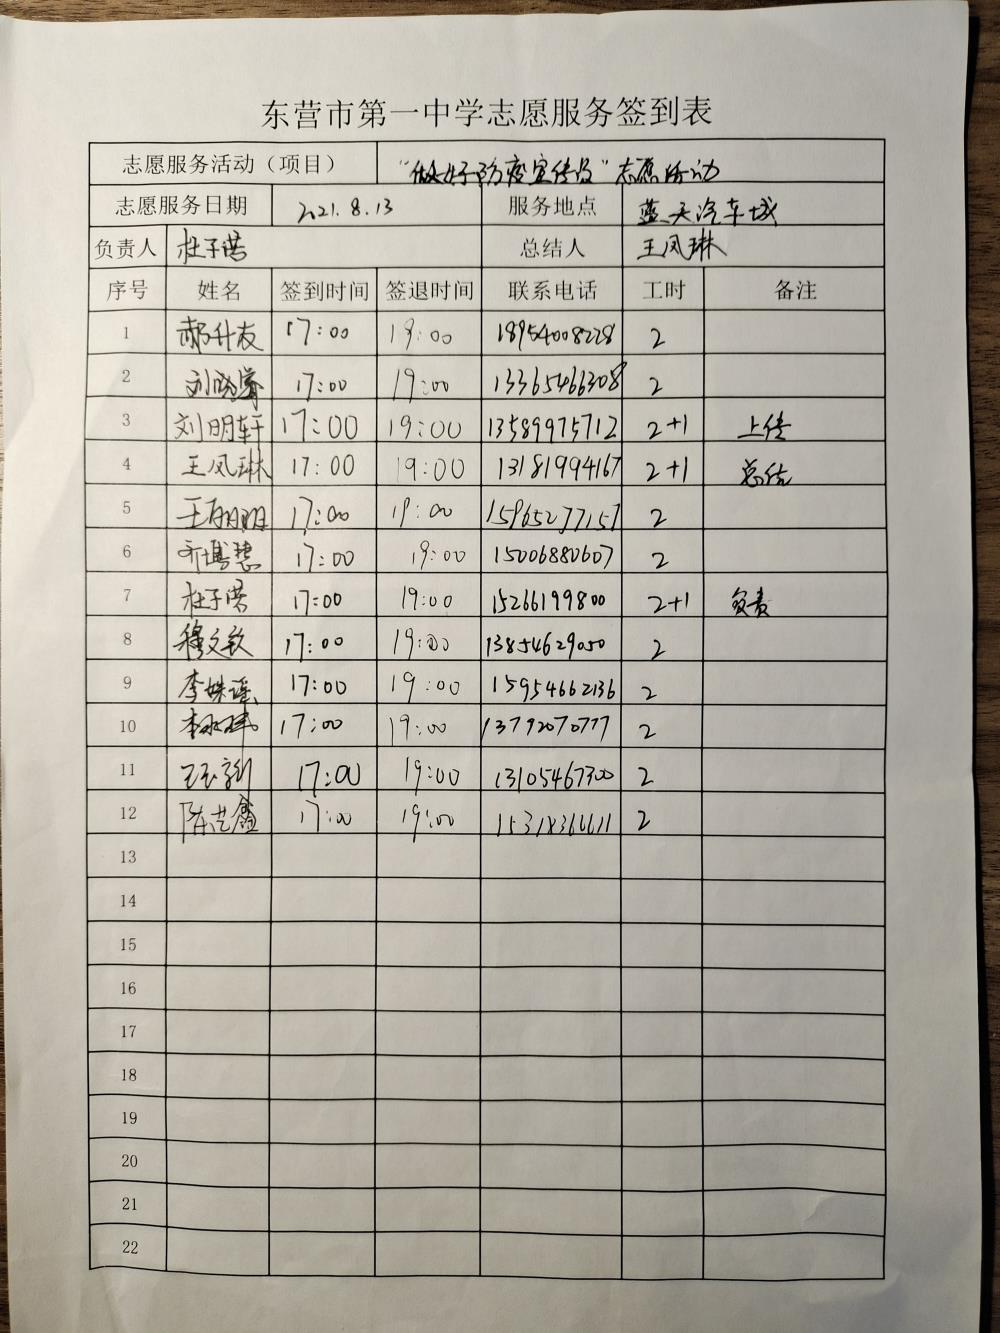 东营市第一中学志愿服务签到表
志愿服务活动（项目） “做好防疫宣传员”志愿活动
志愿服务日期 2021.8.13 服务地点 蓝天汽车城
负责人 杜子諾 总结人 王凤琳
序号 姓名 签到时间 签退时间 联系电话 工时 备注
1 郝升友 17:00 19:00 18954008228 2
2 刘晓睿 17:00 19:00 13365466308 2
3 刘明轩 17:00 19:00 13589975712 2+1 上传
4 王凤琳 17:00 19:00 13181994167 2+1 总结
5 17:00 19:00 15965277157 2
6 齐博慧 17:00 19:00 15006880607 2
7 17:00 19:00 15266199800 2+1 负责
8 穆文敏 17:00 19:00 13854629050 2
9 李姝谣 17:00 19:00 15954662136 2
10 17:00 19:00 13792070777 2
11 17:00 19:00 13105467300 2
12 陈艺鑫 17:00 19:00 15318366611 2
13
14
15
16
17
18
19
20
21
22